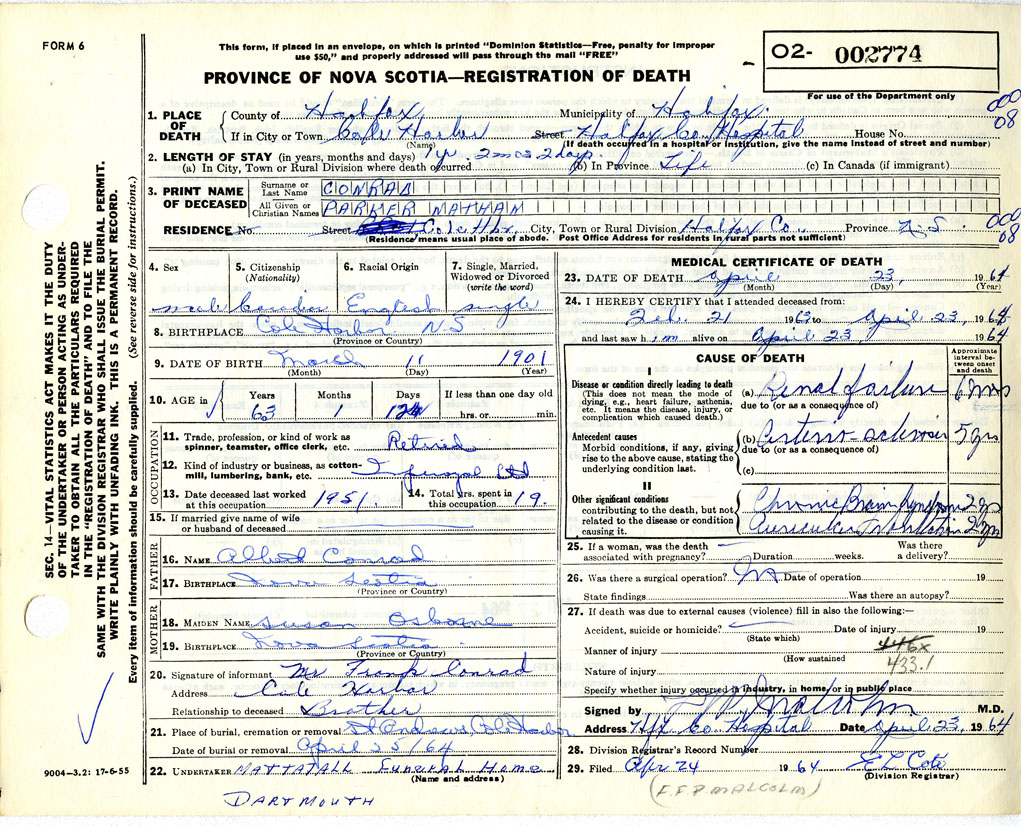 FORM 6
This form, if placed in an envelope, on which is printed "Dominion Statistics—Free, penalty for improper
use $50," and properly addressed will pass through the mail "FREE"
PROVINCE OF NOVA SCOTIA—REGISTRATION OF DEATH
02- 002774
For use of the Department only
000
08
1. PLACE OF DEATH
County of Halifax Municipality of Halifax
If in City or Town Cole Harbor Street Halifax Co. Hospital House No.
(Name) (If death occurred in a hospital or institution, give the name instead of street and number)
2. LENGTH OF STAY (in years, months and days) 1 yr. 2 mos 2 days
(a) In City, Town or Rural Division where death occurred (b) In Province Life (c) In Canada (if immigrant)
3. PRINT NAME OF DECEASED
Surname or Last Name CONRAD
All Given or Christian Names PARKER NATHAN
RESIDENCE No. Street Cole Hbr. City, Town or Rural Division Halifax Co. Province N.S.
(Residence means usual place of abode. Post Office Address for residents in rural parts not sufficient)
000
08
4. Sex 5. Citizenship (Nationality) 6. Racial Origin 7. Single, Married, Widowed or Divorced (write the word)
male English single
8. BIRTHPLACE Cole Harbor N.S
(Province or Country)
9. DATE OF BIRTH March 11 1901
(Month) (Day) (Year)
10. AGE in Years Months Days If less than one day old
63 1 12 hrs. or min.
OCCUPATION
11. Trade, profession, or kind of work as spinner, teamster, office clerk, etc. Retired
12. Kind of industry or business, as cotton-mill, lumbering, bank, etc. Ltd
13. Date deceased last worked at this occupation 1951. 14. Total yrs. spent in this occupation 19.
15. If married give name of wife or husband of deceased
FATHER
16. NAME Albert Conrad
17. BIRTHPLACE Nova Scotia
(Province or Country)
MOTHER
18. MAIDEN NAME Susan Osborne
19. BIRTHPLACE Nova Scotia
(Province or Country)
20. Signature of informant Mr Frank Conrad
Address Cole Harbor
Relationship to deceased Brother
21. Place of burial, cremation or removal St Andrews Col Harbor
Date of burial or removal April 25/64
22. UNDERTAKER MATTATALL FUNERAL HOME
(Name and address)
DARTMOUTH
MEDICAL CERTIFICATE OF DEATH
23. DATE OF DEATH April 23, 1964
(Month) (Day) (Year)
24. I HEREBY CERTIFY that I attended deceased from:
Feb. 21 1963 to April 23, 1964
and last saw him alive on April 23, 1964
CAUSE OF DEATH
Approximate interval between onset and death
I
Disease or condition directly leading to death
(This does not mean the mode of dying, e.g., heart failure, asthenia, etc. It means the disease, injury, or complication which caused death.)
(a) Renal failure 6 mos
due to (or as a consequence of)
Antecedent causes
Morbid conditions, if any, giving rise to the above cause, stating the underlying condition last.
(b) Arterio-sclerosis 5 yrs
due to (or as a consequence of)
(c)
II
Other significant conditions
contributing to the death, but not related to the disease or condition causing it.
Chronic Brain Syndrome 2 yrs
Auricular Fibrillation 2 yrs
25. If a woman, was the death associated with pregnancy? Duration weeks. Was there a delivery?
26. Was there a surgical operation? No Date of operation 19
State findings Was there an autopsy?
27. If death was due to external causes (violence) fill in also the following:—
Accident, suicide or homicide? Date of injury 19
(State which)
Manner of injury 446x
(How sustained) 433.1
Nature of injury
Specify whether injury occured in industry, in home, or in public place
Signed by Malcolm M.D.
Address Hfx Co. Hospital Date April 23, 1964
28. Division Registrar's Record Number
29. Filed Apr 24 1964 E L Cote
(Division Registrar)
(F.F.P. MALCOLM)
SEC. 14—VITAL STATISTICS ACT MAKES IT THE DUTY
OF THE UNDERTAKER OR PERSON ACTING AS UNDER-
TAKER TO OBTAIN ALL THE PARTICULARS REQUIRED
IN THE "REGISTRATION OF DEATH" AND TO FILE THE
SAME WITH THE DIVISION REGISTRAR WHO SHALL ISSUE THE BURIAL PERMIT.
WRITE PLAINLY WITH UNFADING INK. THIS IS A PERMANENT RECORD.
Every item of information should be carefully supplied. (See reverse side for instructions.)
9004—3.2: 17-6-55